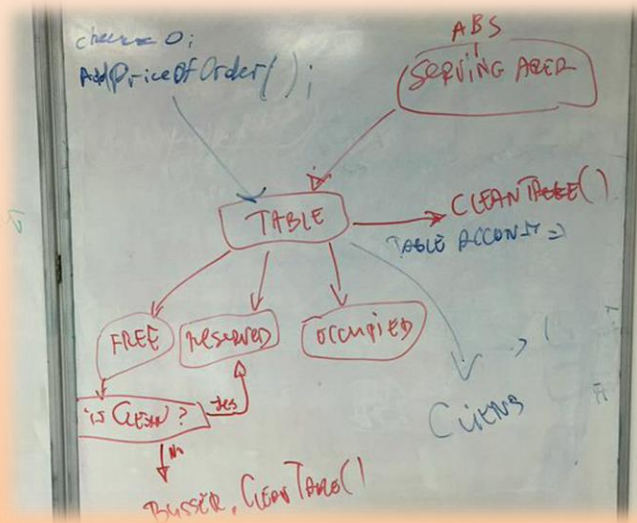 ABS
AddPriceOfOrder();
SERVING
TABLE
CLEANTABLE()
TABLE ACCONIT =>
FREE
RESERVED
OCCUPIED
is CLEAN?
Yes
No
CLIENS
BUSSER. CLEANTABLE()